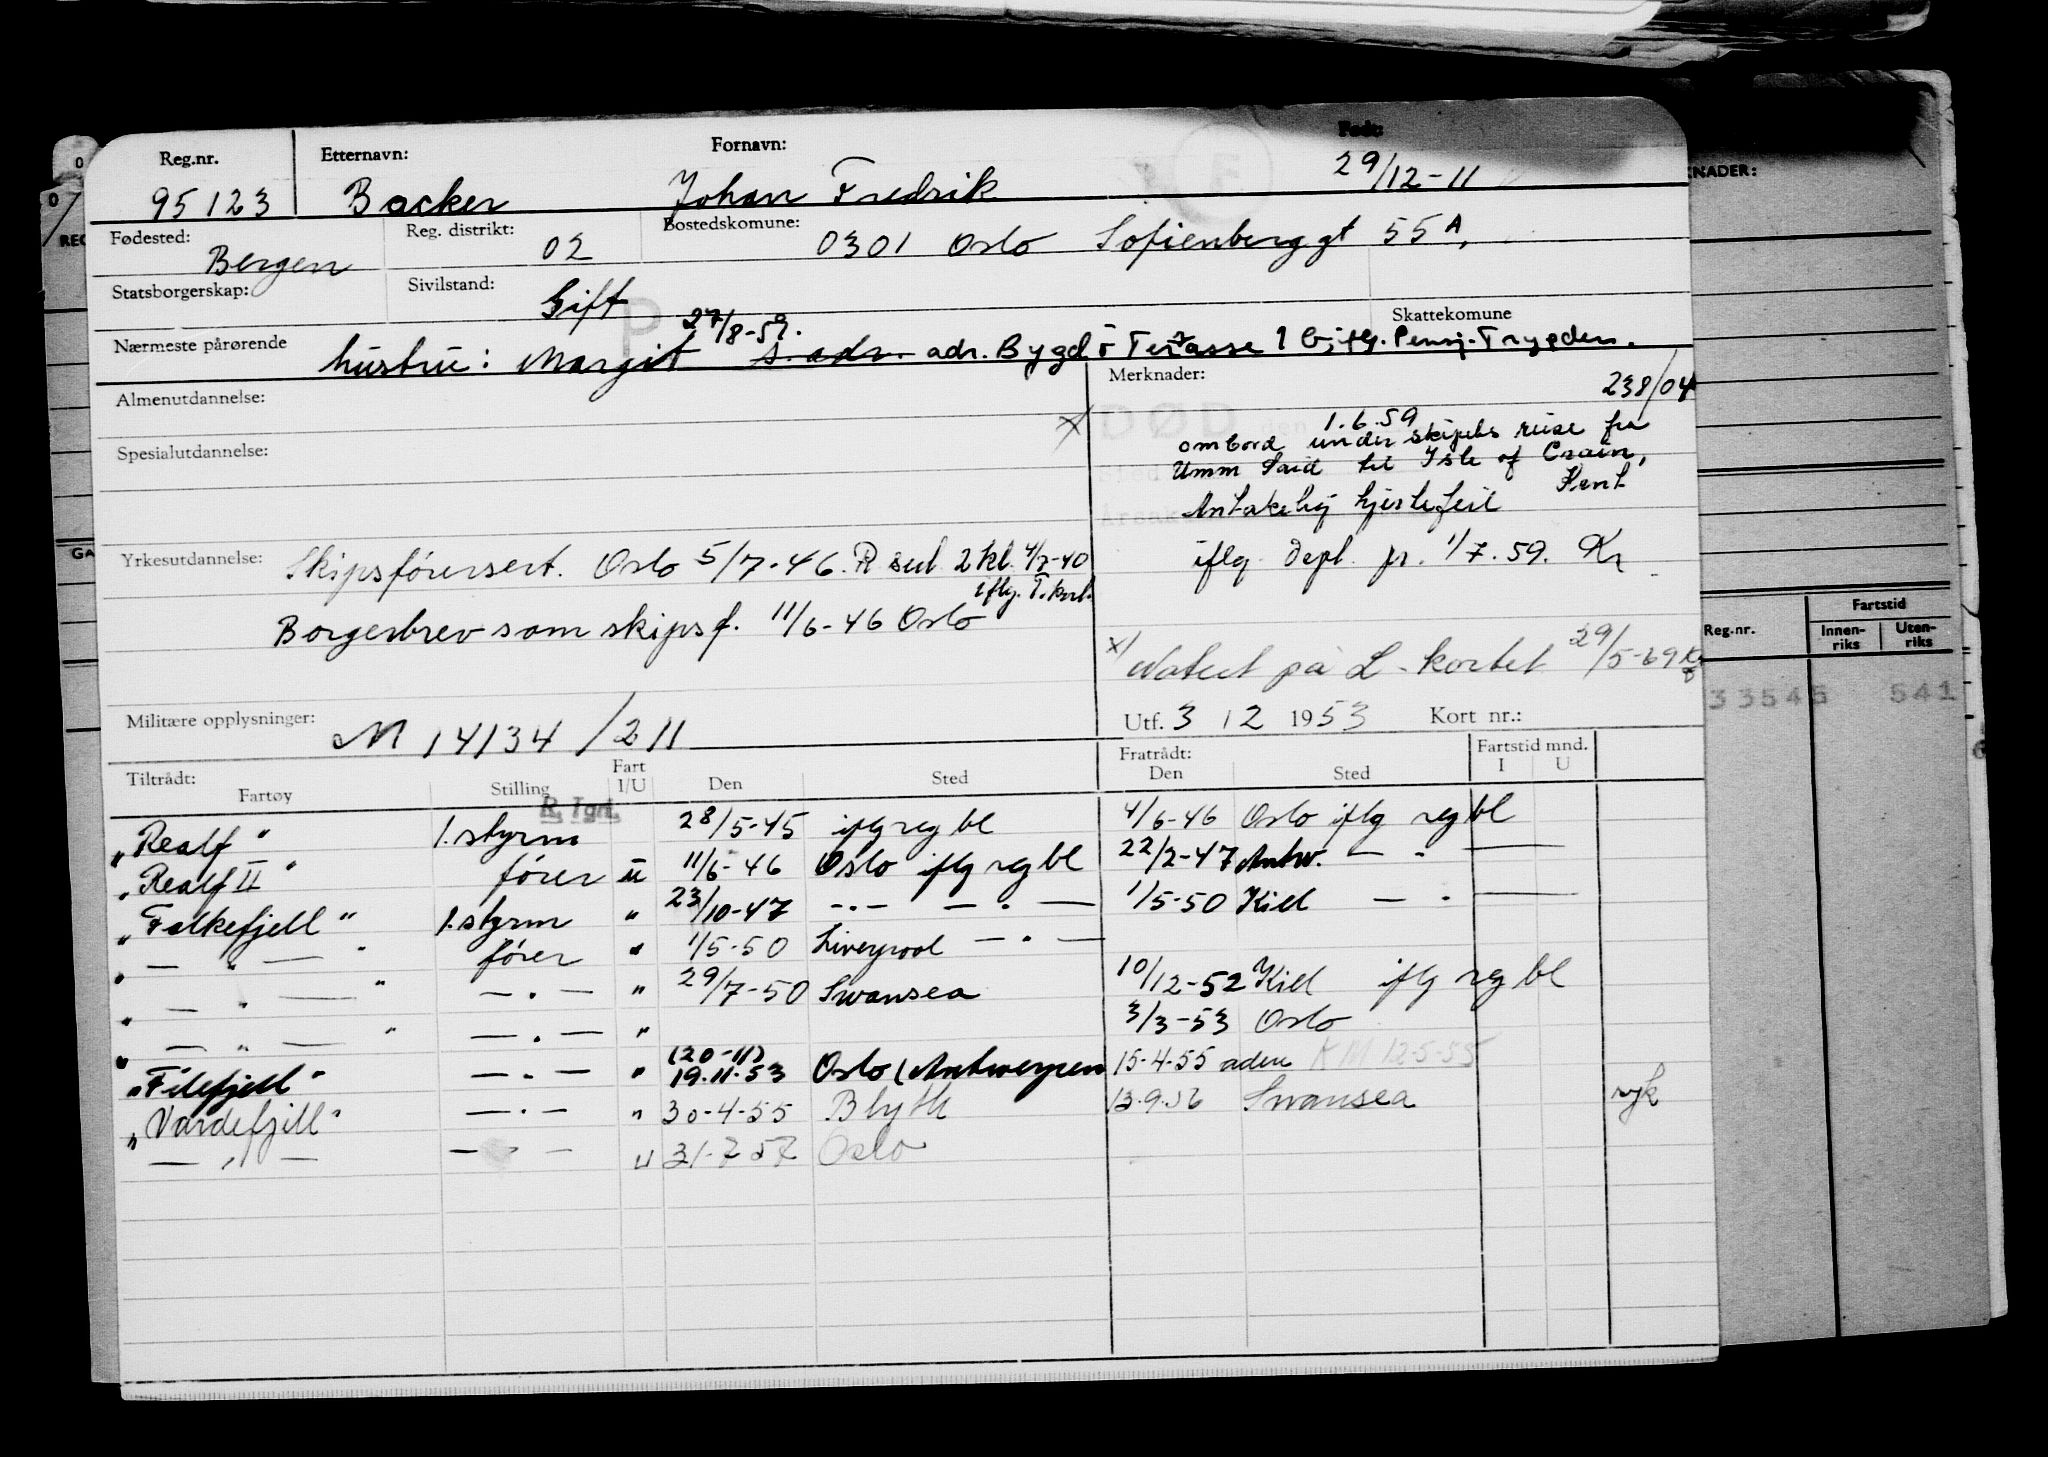 Reg.nr. Etternavn: Fornavn: Født:
95123 Backer Johan Fredrik 29/12-11
Fødested: Reg. distrikt: Bostedskomune:
Bergen 02 0301 Oslo Sofienberggt 55A,
Statsborgerskap: Sivilstand: Skattekomune
Gift
P
27/8-59.
Nærmeste pårørende hustru: Margit s. adr. adr. Bygdö Terasse 1 iflg. Pensj. Trygden.
Almenutdannelse: Merknader: 238/04
x/ DØD den 1.6.59
ombord under skipets reise fra
Spesialutdannelse: Umm Said til Isle of Crain,
Kent
Antakelig hjertefeil
Yrkesutdannelse: Skipsførersert. Oslo 5/7-46. R sert 2 kl. 4/7-40
iflg. T.kort.
iflg. Dept. pr. 1/7.59. Kr
Borgerbrev som skipsf. 11/6-46 Oslo
x/ Notert på L-kortet 29/5-69
Militære opplysninger: M 14134/211
Utf. 3 12 1953 Kort nr.:
Tiltrådt: Fratrådt: Fartstid mnd.
Fartøy Stilling Fart I/U Den Sted Den Sted I U
R. Tgrt.
"Realf" 1. styrm 28/5-45 iflg reg bl 4/6-46 Oslo iflg reg bl
"Realf II" fører u 11/6-46 Oslo iflg reg bl 22/2-47 Antw. — " —
"Falkefjell" 1. styrm " 23/10-47 —.— —.— 1/5-50 Kiel — . —
" — " — " fører " 1/5-50 Liverpool —.—
" — " — " —.— " 29/7-50 Swansea 10/12-52 Kiel iflg reg bl
" — " — " —.— " 3/3-53 Oslo
"Filefjell" —.— " (20-11) 19.11.53 Oslo (Antwerpen 15.4.55 KM 12-5-55
"Vardefjell" —.— " 30-4-55 Blyth 13.9.56 Swansea
— " — —"— u 31-7 57 Oslo
KNADER:
Reg.nr. Fartstid
Innen-riks Uten-riks
33545 541
REG
GA